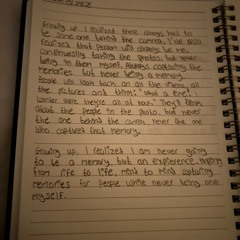 Growing up, I realized there always has to
be someone behind the camera, I've also
realised that person will always be me,
continuously taking the photos, but never
being in them myself, always capturing the
memories but never being a memory.
People will look back on all the videos, all
the pictures and think: "Wow! A time!
were they're all at you." They'll think
about the people in the photo, but never
the one behind the camera, never the one
who captured that memory.
Growing up, I realized I am never going
to be a memory, but an experience, hopping
from life to life, mind to mind capturing
memories for people while never being one
myself.